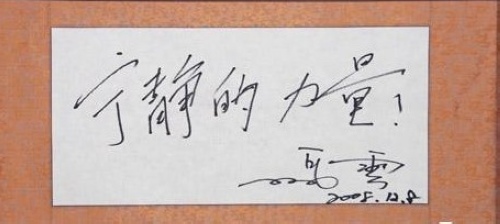 宁静的力量！
马雲
2008.12.8